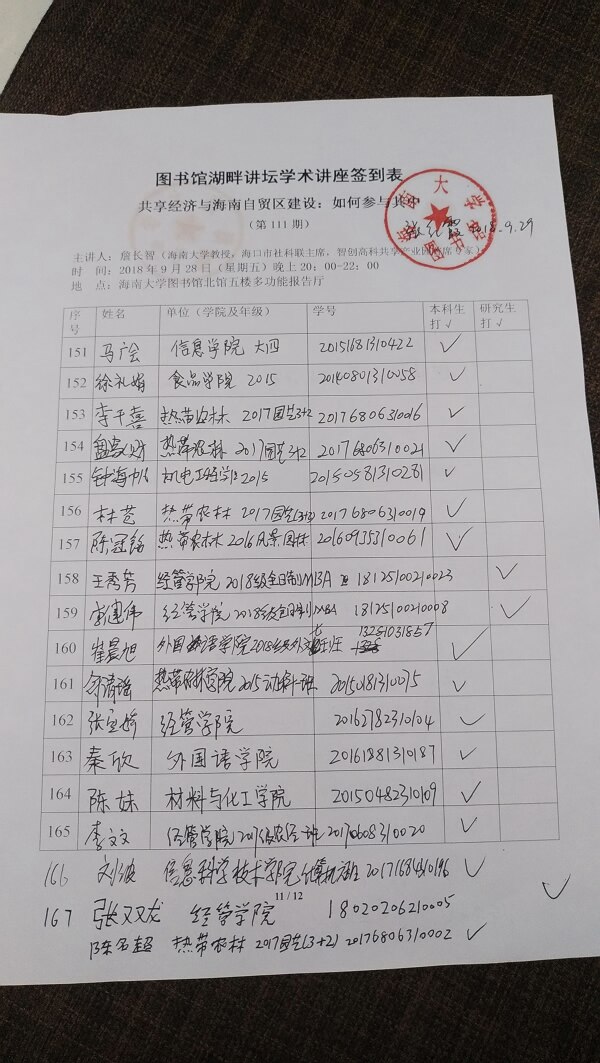 图书馆湖畔讲坛学术讲座签到表
共享经济与海南自贸区建设：如何参与其中
（第 111 期）
18.9.29
主讲人：詹长智（海南大学教授，海口市社科联主席，智创高科共享产业园首席专家）
时 间：2018 年 9 月 28 日（星期五）晚上 20：00-22：00
地 点：海南大学图书馆北馆五楼多功能报告厅
序号 姓名 单位（学院及年级） 学号 本科生打√ 研究生打√
151 马广会 信息学院 大四 20151681310422 √
152 徐礼娟 食品学院 2015 20140801310058 √
153 李千喜 热带农林 2017园艺3+2 20176806310016 √
154 热带农林 2017园艺3+2 20176806310021 √
155 钟海 机电工程学院2015 20150581310281 √
156 林芑 热带农林 2017园艺(3+2) 20176806310019 √
157 陈冠铭 热带农林 2016风景园林 20160935310061 √
158 王秀芳 经管学院 2018级全日制MBA 18125100210023 √
159 彭建伟 经管学院 2018级全日制MBA 18125100210008 √
160 崔晨旭 外国语学院2018级 13251031857 √
161 热带农林学院2015动科一班 20150181310075 √
162 张宝娇 经管学院 20162782310104 √
163 秦欣 外国语学院 20161881310187 √
164 陈妹 材料与化工学院 20150482310109 √
165 李文文 经管学院2017级农经一班 20170608310020 √
166 刘波 信息科学技术学院 √
11 / 12
167 张双龙 经管学院 18020206210005 √
陈名超 热带农林 2017园艺(3+2) 20176806310002 √